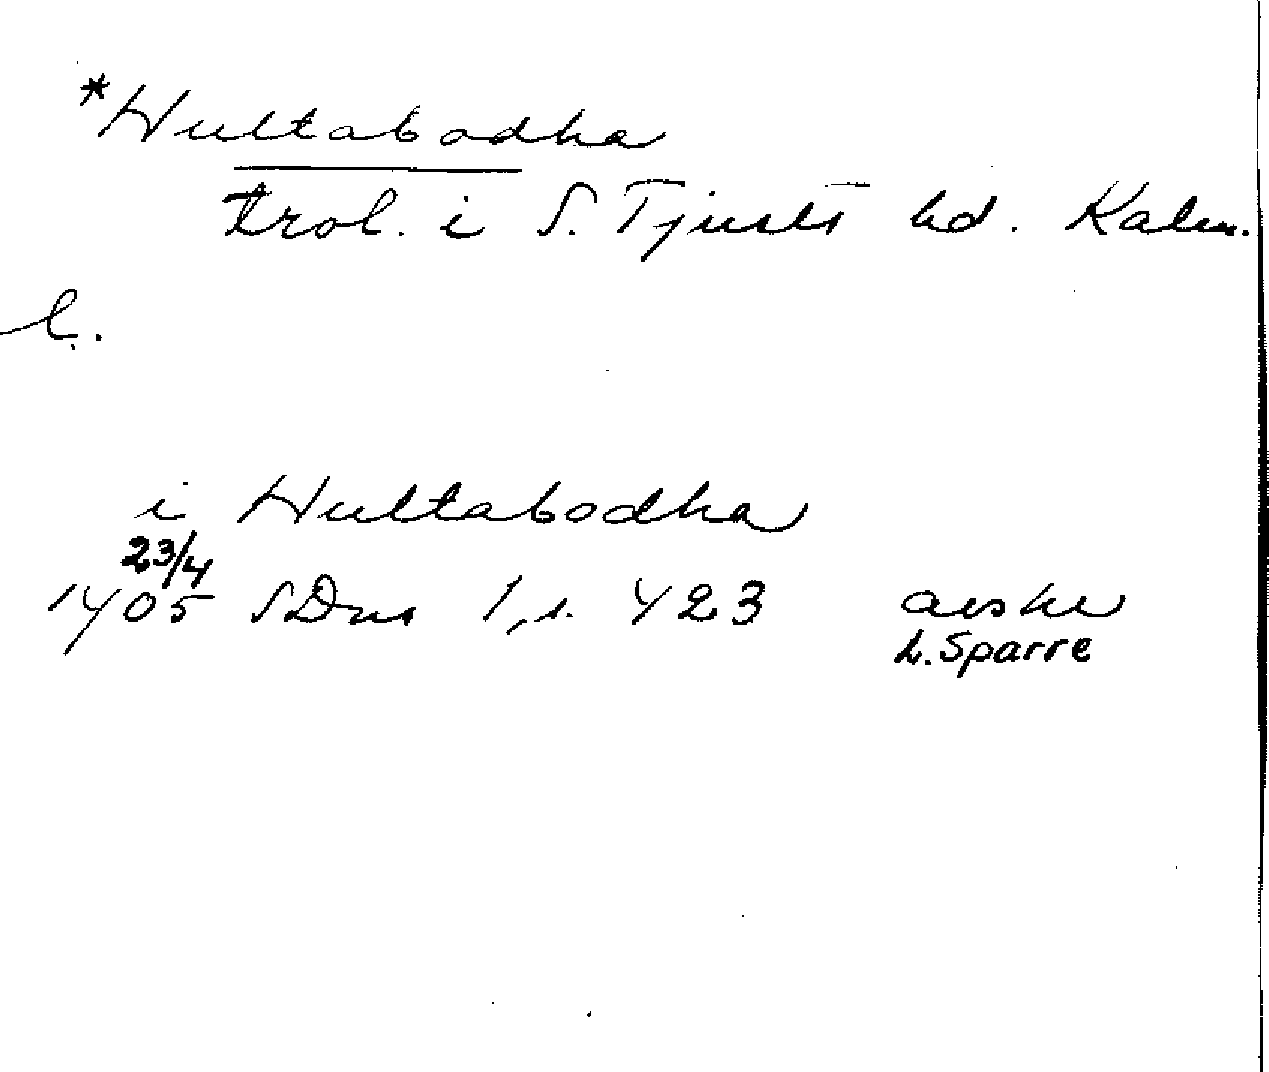 *Hultabodha
trol. i S. Tjusts hd. Kalm.
l.
i Hultabodha
23/4
1405 SDns 1, s. 423 avskr
L. Sparre